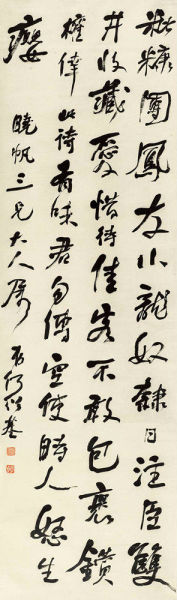 粃糠團鳳友小龍奴隸日注臣雙
井收藏愛惜待佳客不敢包裹鑽
權倖此詩有味君勿傳空使時人怒生
癭
曉帆三兄大人屬 何紹基